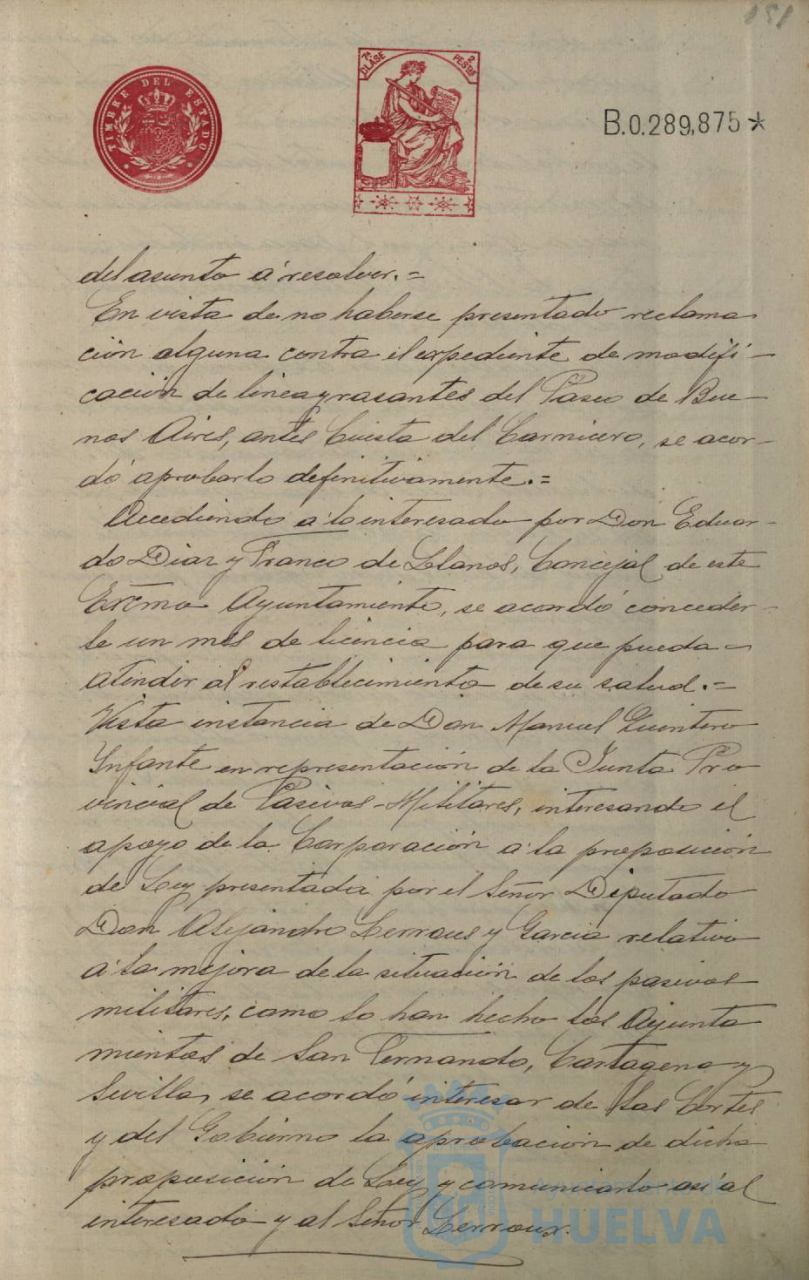 151
TIMBRE DEL ESTADO
7ª CLASE 2 PESTAS
B.0.289,875*
del asunto á resolver.=
En vista de no haberse presentado reclama
ción alguna contra el expediente de modifi-
cación de linea y rasantes del Paseo de Bue-
nos Aires, antes Cuesta del Carnicero, se acor-
dó aprobarlo definitivamente.=
Accediendo a lo interesado por Don Eduar-
do Diaz y Franco de Llanos, Concejal de este
Excmo Ayuntamiento, se acordó conceder-
le un mes de licencia para que pueda
atender al restablecimiento de su salud.=
Vista instancia de Don Manuel Quintero
Infante en representación de la Junta Pro
vincial de Pasivos-Militares, interesando el
apoyo de la Corporación a la proposición
de Ley presentada por el Señor Diputado
Don Alejandro Lerroux y Garcia relativo
a la mejora de la situación de los pasivos
militares, como lo han hecho los Ayunta
mientos de San Fernando, Cartagena y
Sevilla, se acordó interesar de las Cortes
y del Gobierno la aprobación de dicha
proposición de Ley y comunicarlo así al
interesado y al Señor Lerroux.
HUELVA